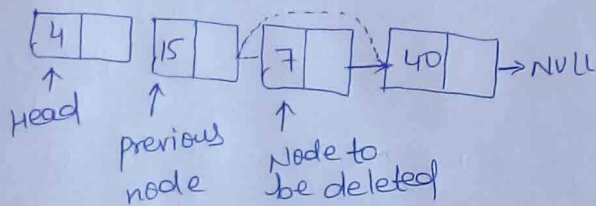 4 15 7 40 → NULL
Head
previous
node
Node to
be deleted